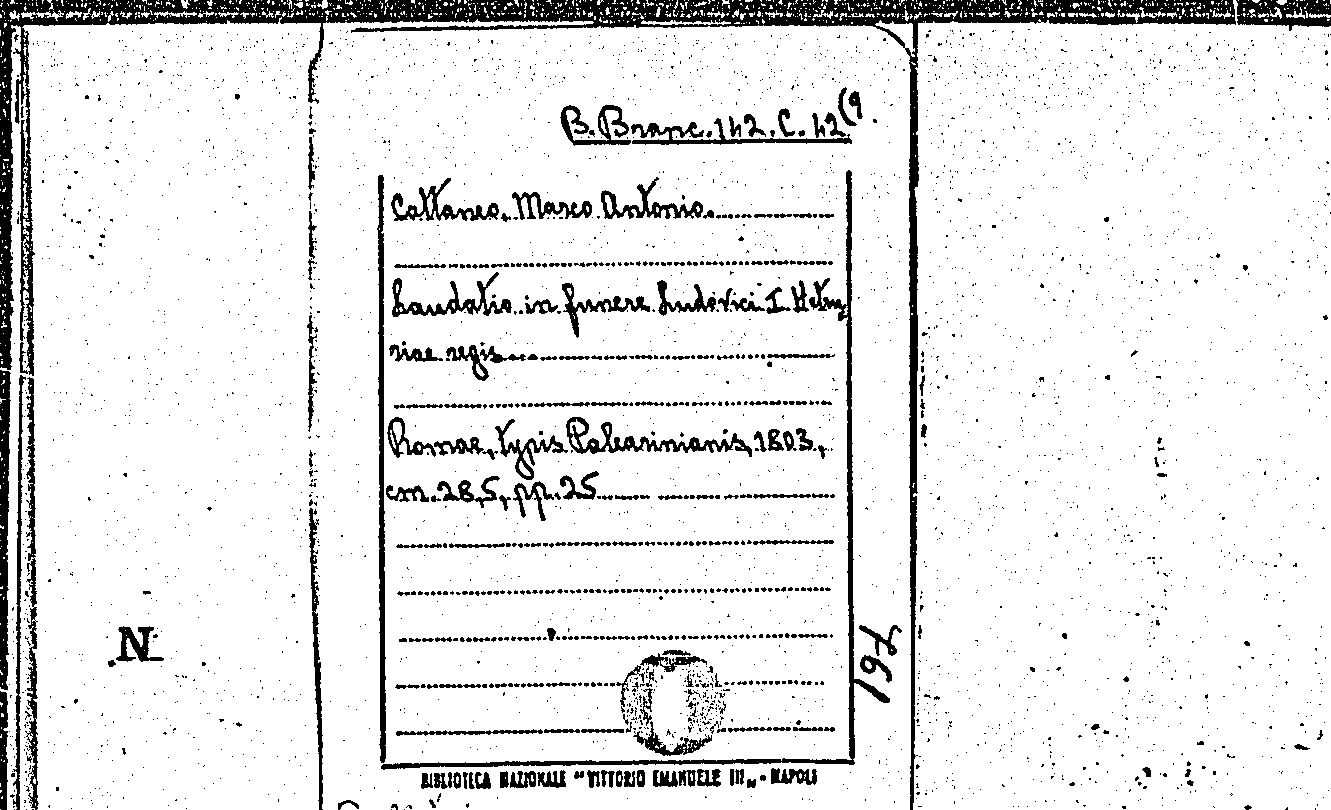 B. Branc. 142. C. 42(9.
Cattaneo, Marco Antonio.
Laudatio in funere Ludovici I Hetru-
riae regis...
Romae, typis Palearinianis, 1803,
cm. 28,5, pp. 25
N
167
BIBLIOTECA NAZIONALE "VITTORIO EMANUELE III" - NAPOLI